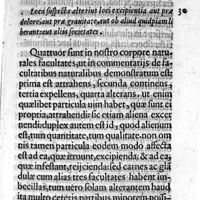 Loci suspecta alterius loci excipienda, aut pro 30
dolore, aut præ gravitate, aut ob aliud quidpiam li
berant aut aliis societates.
Quatuor sunt in nostro corpore natu-
rales facultates, ut in commentarijs de fa-
cultatibus naturalibus demonstratum est:
prima est attrahens, secunda continens,
tertia expellens, quarta alterans. ut enim
quælibet particula ujm habet, quæ sunt ei
propria, attrahendi: sic etiam alienæ excer
nendi: duplex autem est id, quod alienum
est, tum quantitate, tum qualitate. non om
nis tamen particula eodem modo affecta
est ad ea, quæ influunt, excipienda, & ad ea,
quæ infestant, rejicienda: sed carnes ac glã
dulæ cum alias tres facultates habent im
becillas, tum uero solam alterantem haud
ita multo ceteris partibus minorem possi-